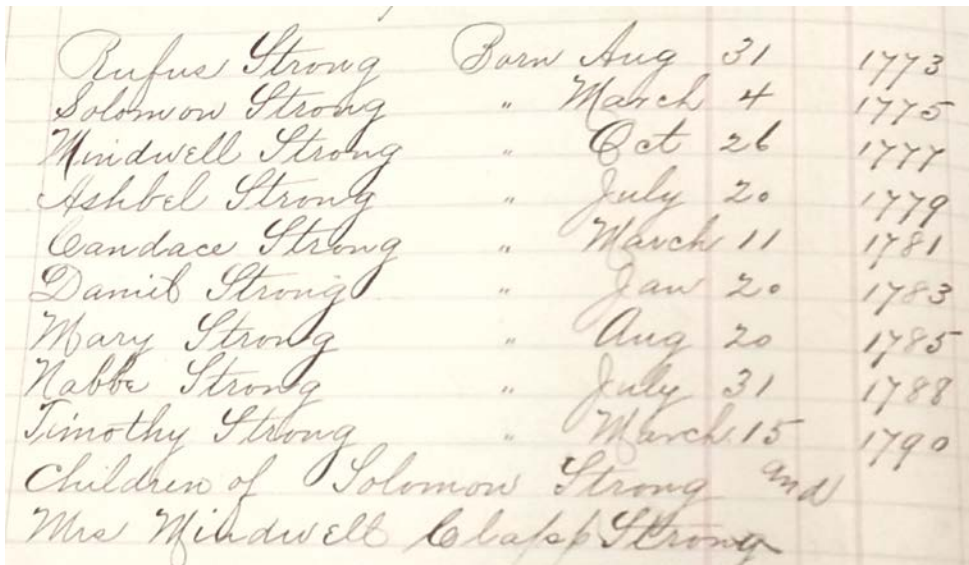 Rufus Strong Born Aug 31 1773
Solomon Strong " March 4 1775
Mindwell Strong " Oct 26 1777
Ashbel Strong " July 20 1779
Candace Strong " March 11 1781
Daniel Strong " Jan 20 1783
Mary Strong " Aug 20 1785
Nabbe Strong " July 31 1788
Timothy Strong " March 15 1790
Children of Solomon Strong and
Mrs Mindwell Clapp Strong